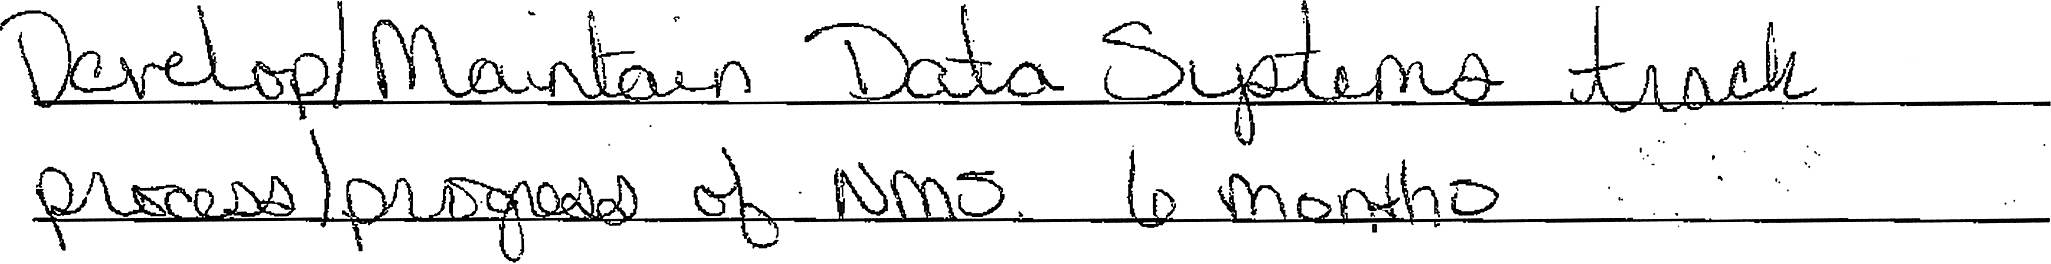 Develop/Maintain Data Systems track
process/progress of NMS. 6 months